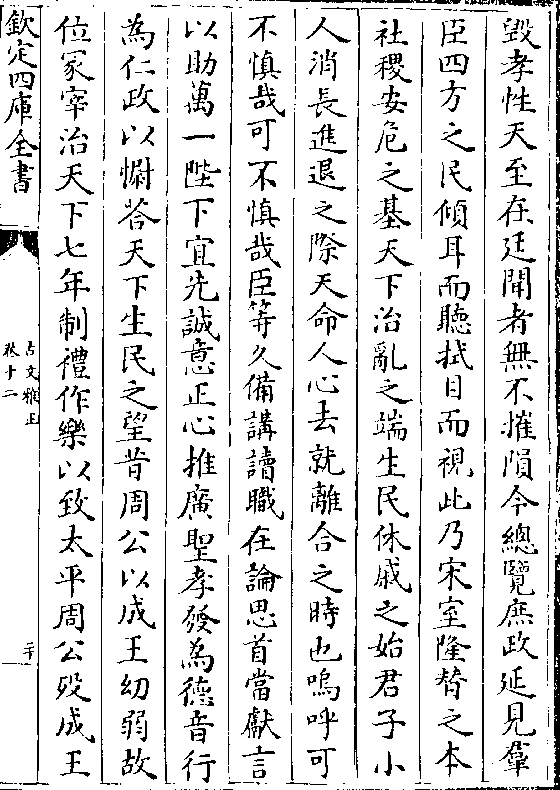 毀孝性天至在廷聞者無不摧隕今總覽庶政延見羣
臣四方之民傾耳而聽拭目而視此乃宋室隆替之本
社稷安危之基天下治亂之端生民休戚之始君子小
人消長進退之際天命人心去就離合之時也嗚呼可
不慎哉可不慎哉臣等久備講讀職在論思首當獻言
以助萬一陛下宜先誠意正心推廣聖孝發為德音行
為仁政以慰荅天下生民之望昔周公以成王幼弱故
位冢宰治天下七年制禮作樂以致太平周公歿成王
欽定四庫全書
古文雅正
卷十二
二十